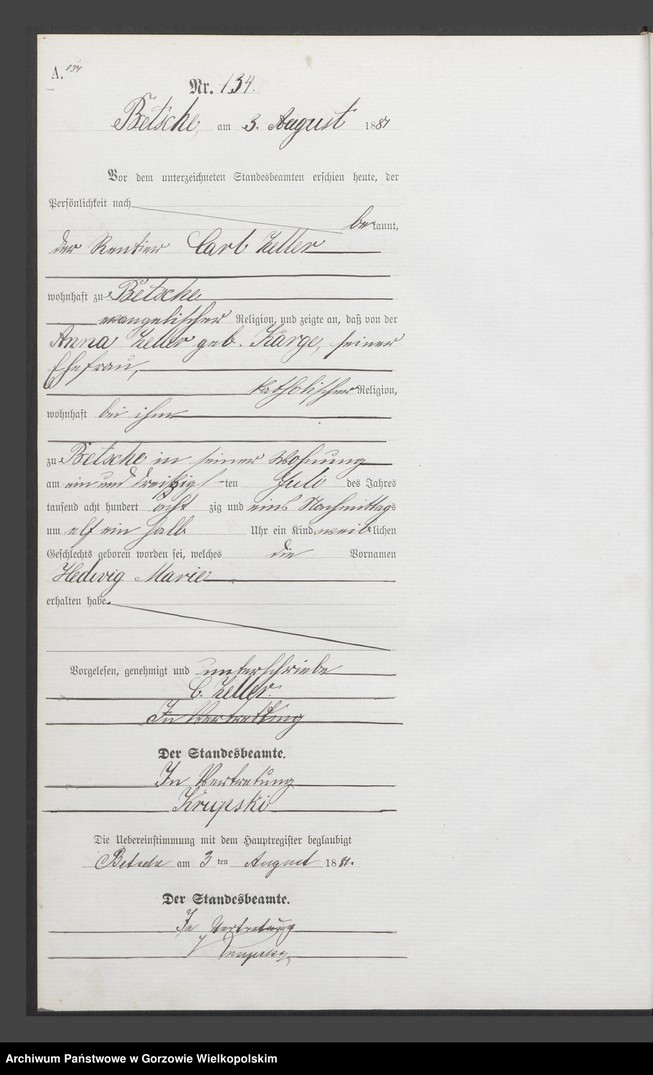 A. 134
Nr. 134.
Betsche, am 3. August 1881
Vor dem unterzeichneten Standesbeamten erschien heute, der
Persönlichkeit nach
bekannt,
der Rentier Carl Zeller
wohnhaft zu Betsche
evangelischer Religion, und zeigte an, daß von der
Anna Zeller geb. Karge, seiner
Ehefrau,
katholischer Religion,
wohnhaft bei ihm
zu Betsche in seiner Wohnung
am ein und dreißigsten Juli des Jahres
tausend acht hundert acht zig und eins Nachmittags
um elf ein halb Uhr ein Kind weiblichen
Geschlechts geboren worden sei, welches die Vornamen
Hedwig Marie
erhalten habe.
Vorgelesen, genehmigt und unterschriebe
C. Zeller.
In Vertretung
Der Standesbeamte.
In Vertretung
Krupski
Die Uebereinstimmung mit dem Hauptregister beglaubigt
Betsche am 3 ten August 1881.
Der Standesbeamte.
In Vertretung
Krupski
Archiwum Państwowe w Gorzowie Wielkopolskim